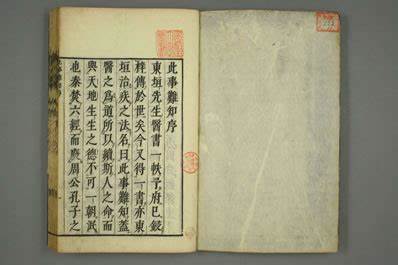 此事難知序
東垣先生醫書一帙予府已鋟
梓傳於世矣今又得一書亦東
垣治疾之法名曰此事難知蓋
醫之為道所以續斯人之命而
與天地生生之德不可一朝泯
也秦焚六經而醫周公孔子之